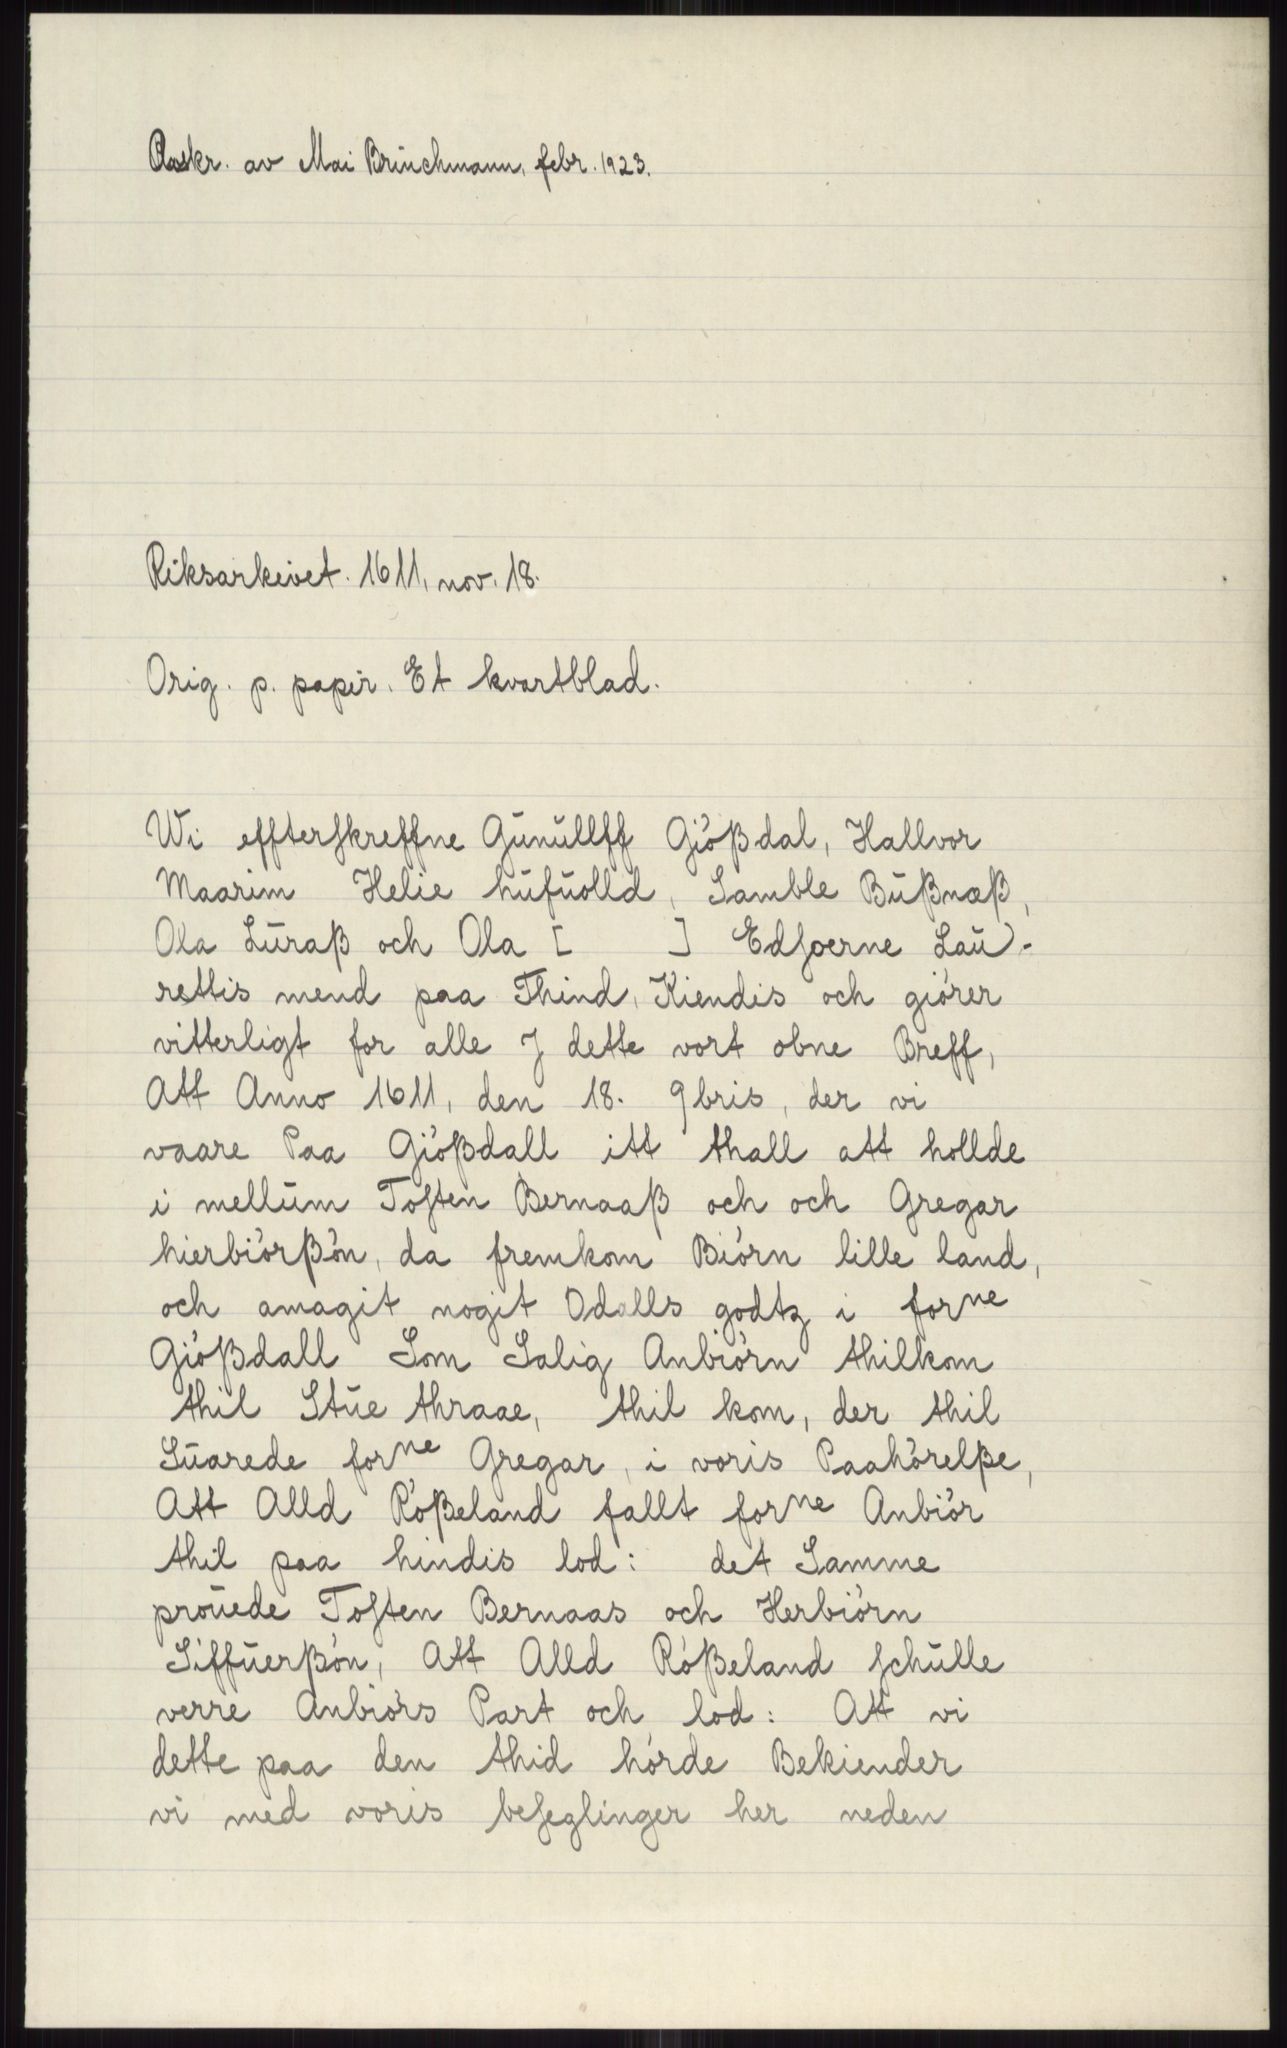 Avskr. av Mai Brünchmann, febr. 1923.
Riksarkivet. 1611, nov. 18.
Orig. p. papir. Et kvartblad.
Wi effterskreffne Gunullff Giößdal, Hallvor
Maarim Helie hufuolld, Samble Bußnæß,
Ola Luraß och Ola [ ] Edsoerne Lau-
rettis mend paa Thind, Kiendis och giörer
vitterligt for alle J dette vort obne Breff,
Att Anno 1611, den 18. 9bris, der vi
vaare Paa Giößdall itt thall att hollde
i mellum Tosten Bernaaß och och Gregar
hierbiörßön, da fremkom Biörn lille land,
och amagit nogit Odalls godtz i forne
Giößdall Som Salig Anbiörn thilkom
thil Stue thraae, thil kom, der thil
Suarede forne Gregar, i voris Paahörelße,
Att Alld Rößeland fallt forne Anbiör
thil paa hindis lod: det Samme
prouede Tosten Bernaas och Herbiörn
Siffuerßön, Att Alld Rößeland schulle
verre Anbiörs Part och lod: Att vi
dette paa den thid hörde Bekiender
vi med voris beseglinger her neden